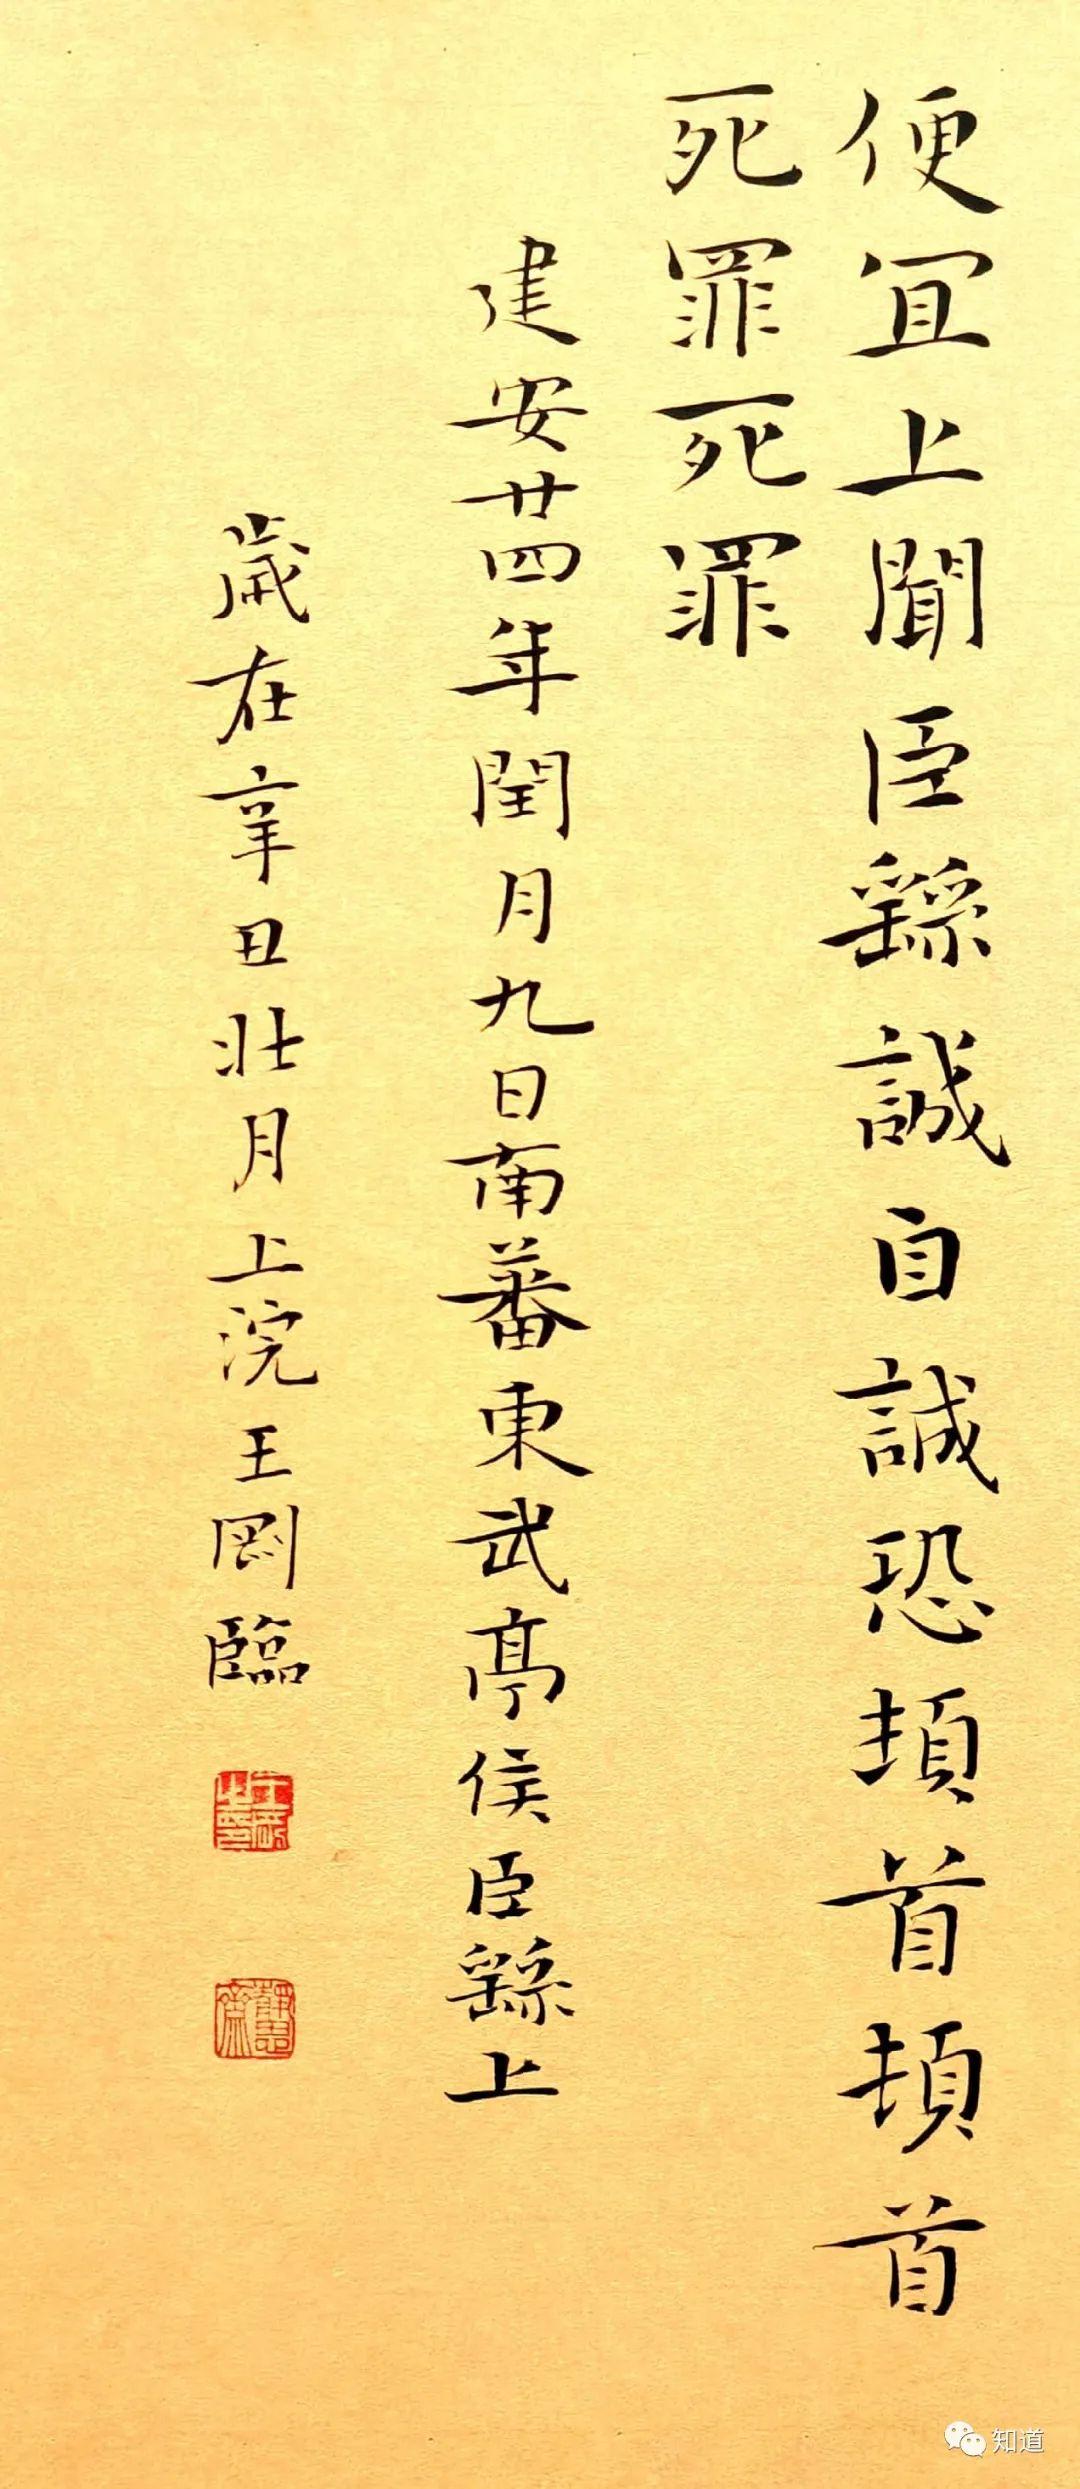 便冝上聞臣繇誠自誠恐頓首頓首
死罪死罪
建安廿四年閏月九日南蕃東武亭侯臣繇上
歲在辛丑壯月上浣王剛臨
知道